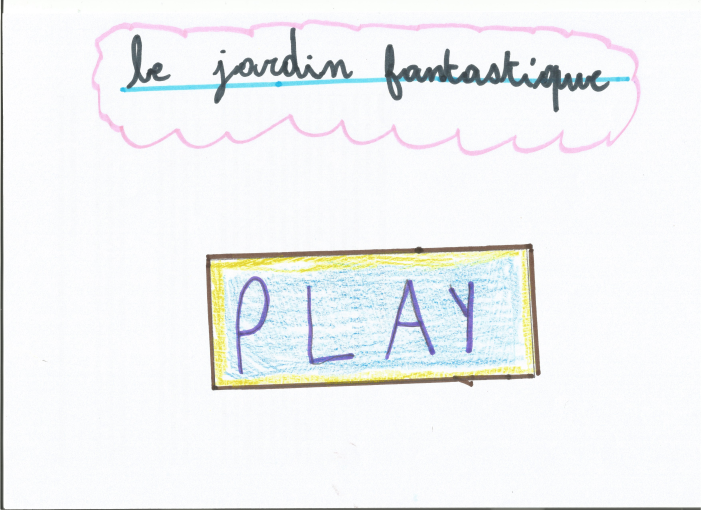 le jardin fantastique
PLAY